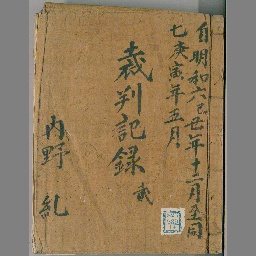 自明和六己丑年十二月至同
七庚寅年五月
裁判記録 貳
内野乱